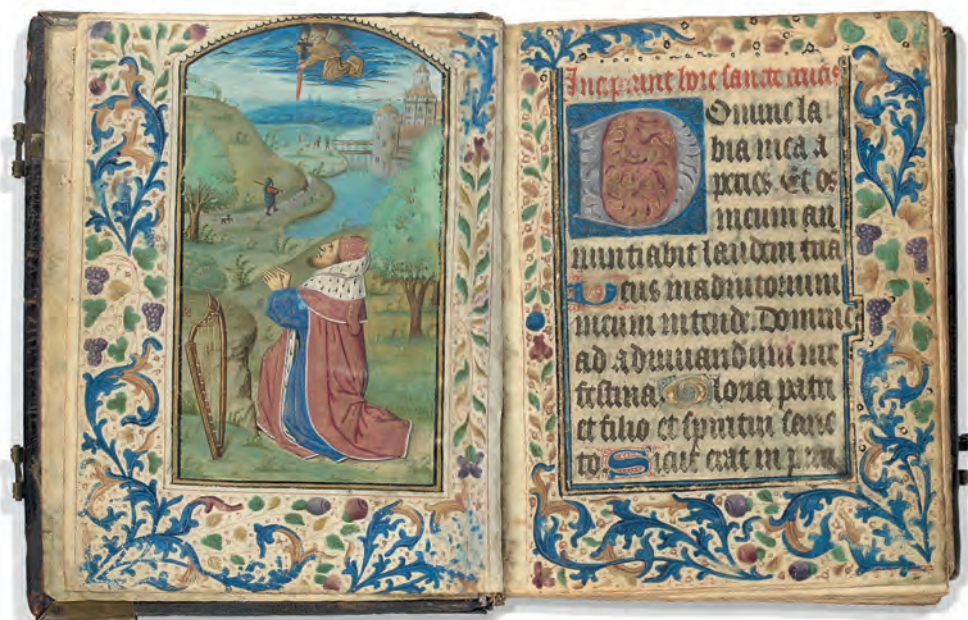 Incipiunt hore sancte crucis
Domine la
bia mea a
peries Et os
meum an
nuntiabit laudem tua
Deus in adiutorium
meum intende. Domine
ad adiuuandum me
festina Gloria patri
et filio et spiritui sanc
to Sicut erat in prin